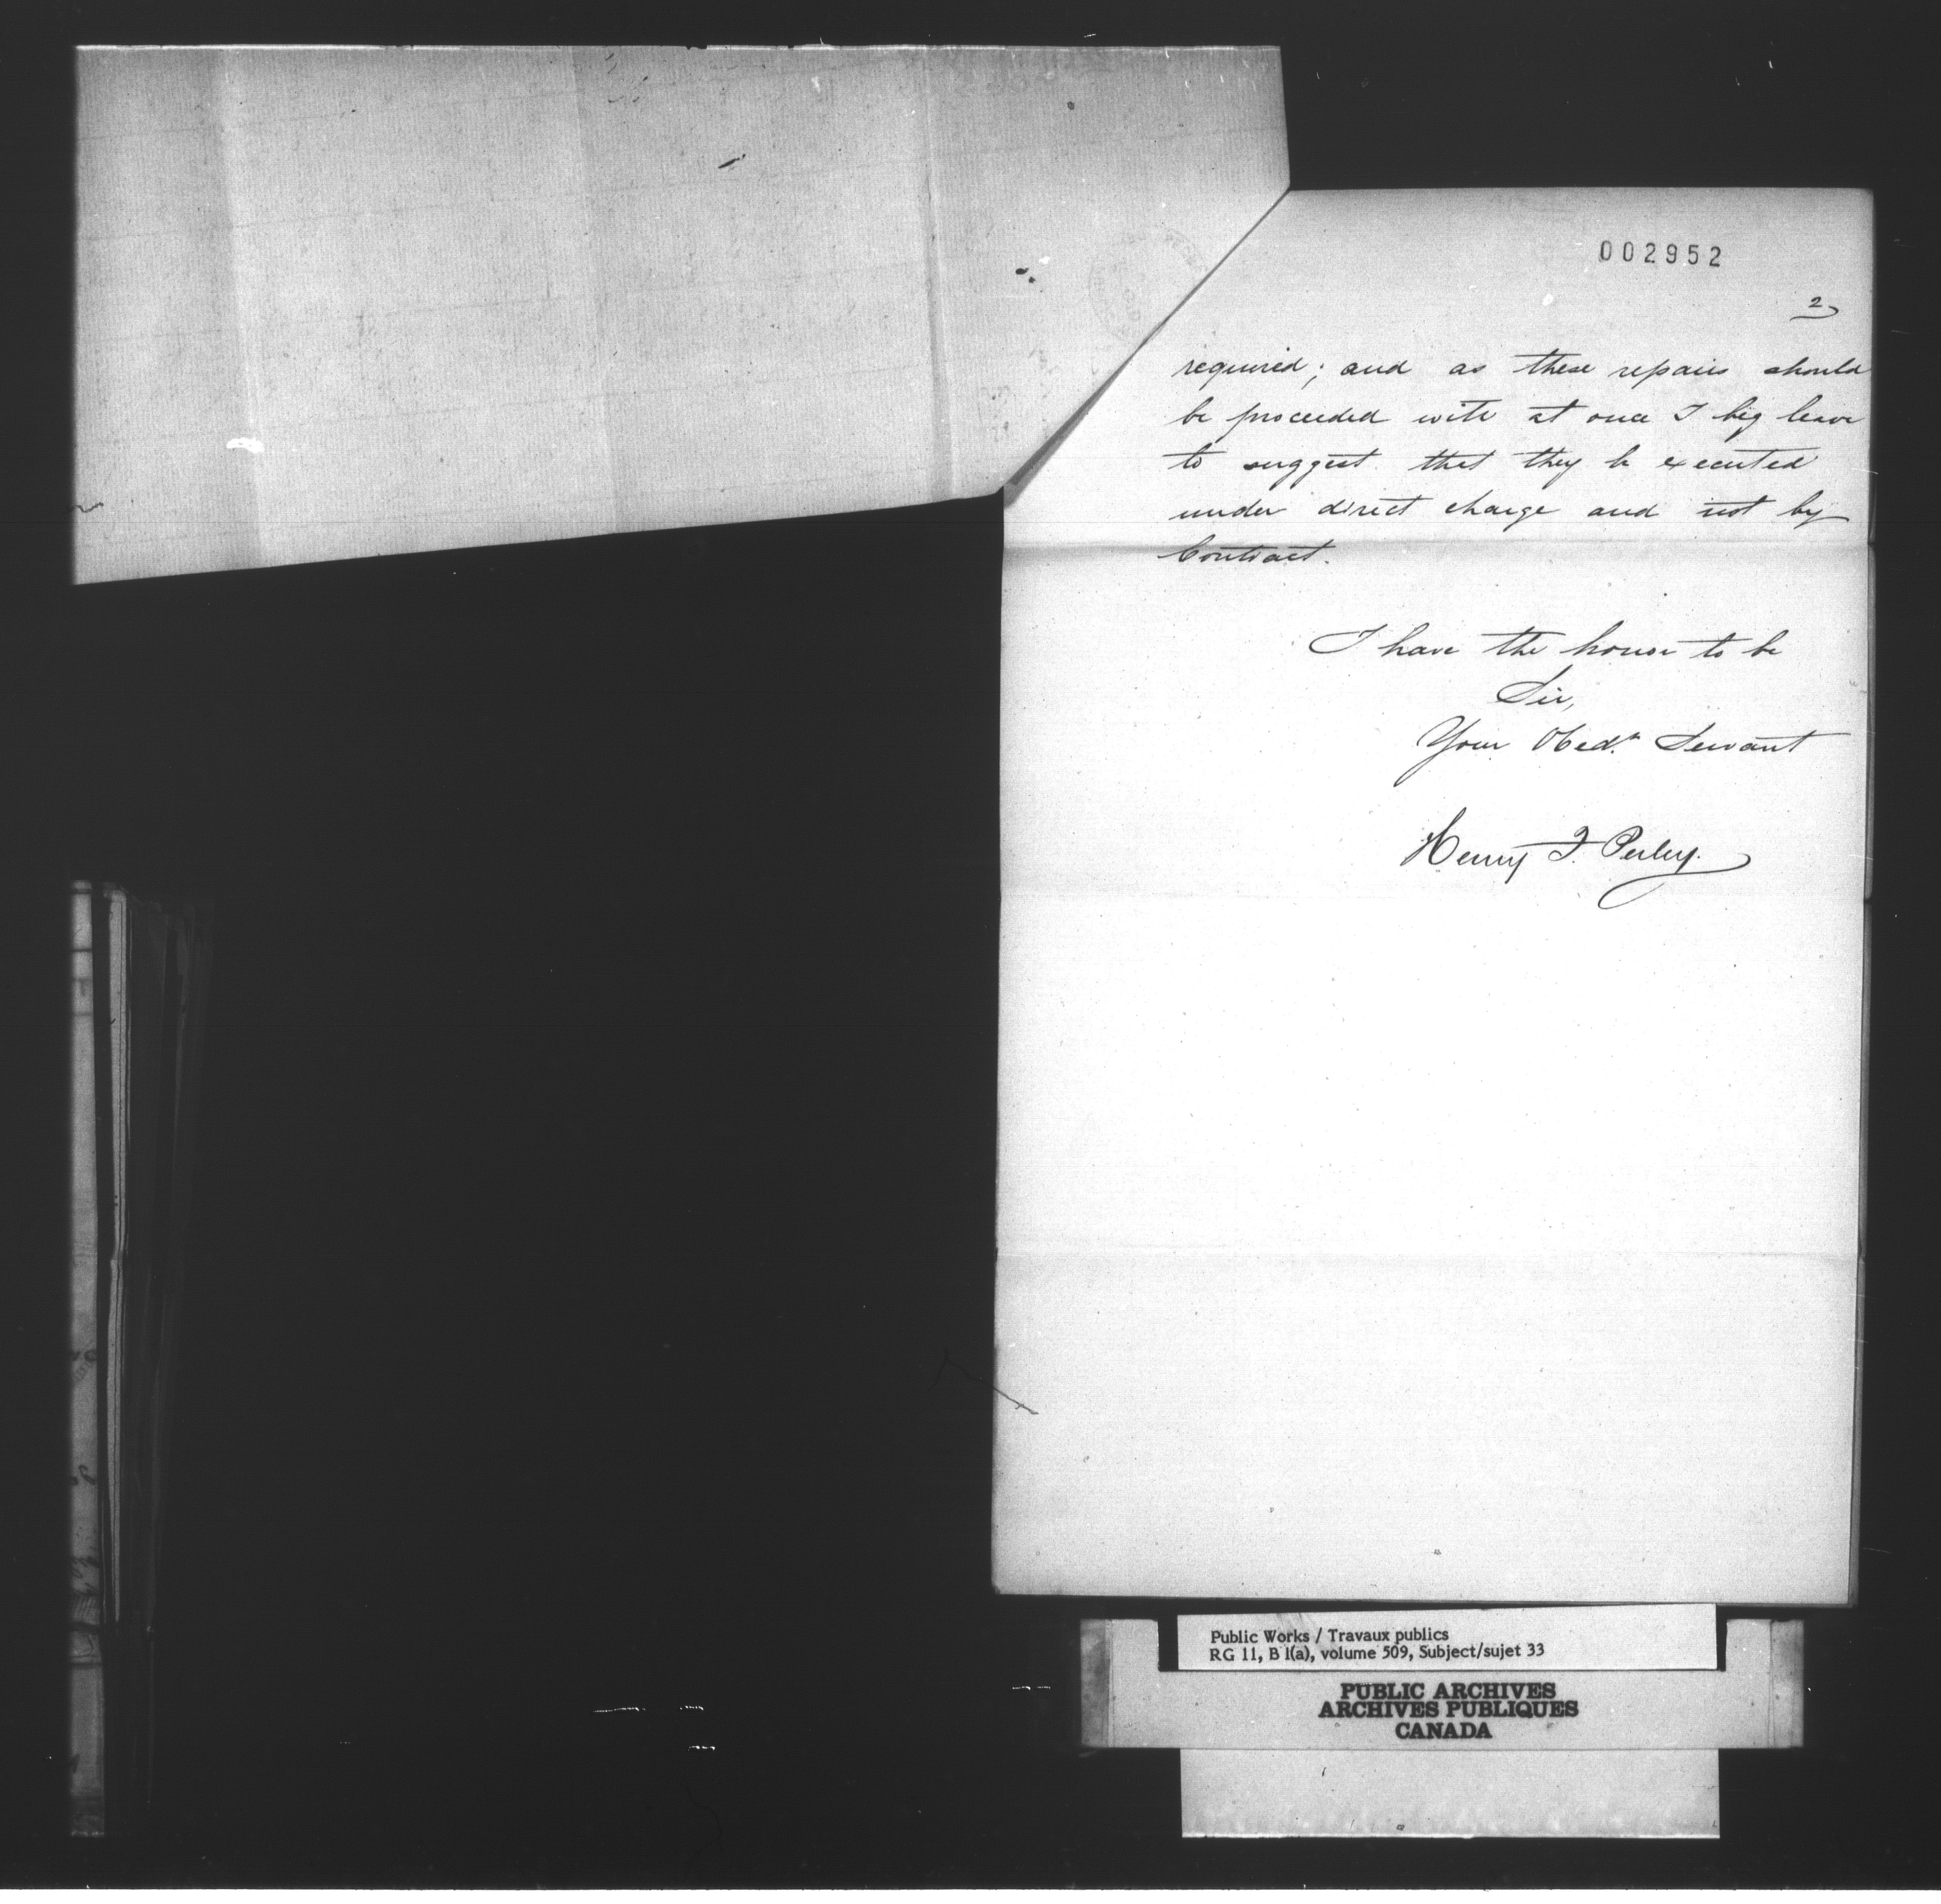 002952
2
required; and as these repairs should
be proceeded with at once I beg leave
to suggest that they be executed
under direct charge and not by
Contract.
I have the honor to be
Sir,
Your Obedt. Servant
Henry F. Perley.
Public Works / Travaux publics
RG 11, B 1(a), volume 509, Subject/sujet 33
PUBLIC ARCHIVES
ARCHIVES PUBLIQUES
CANADA